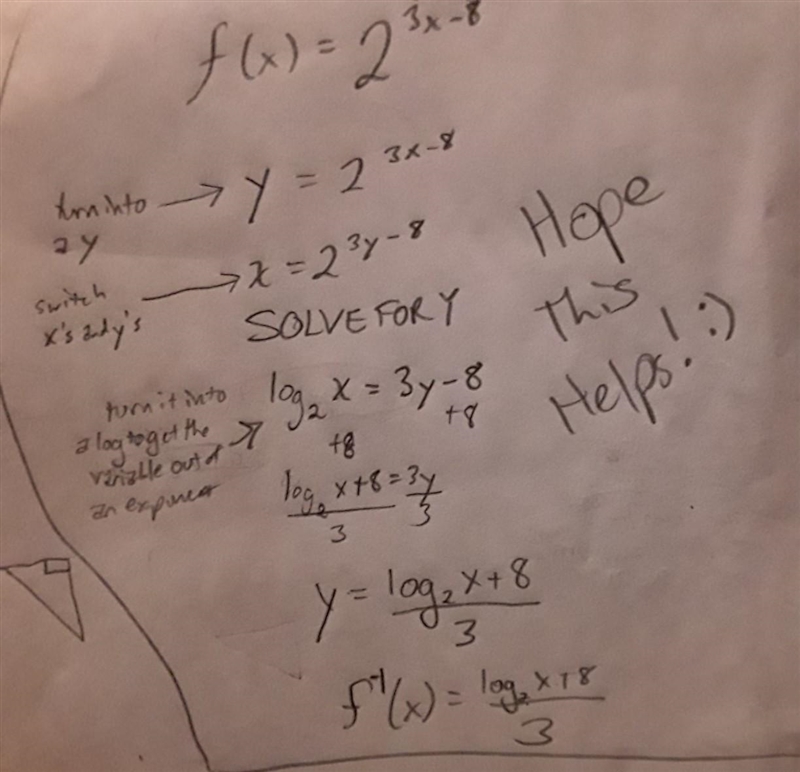 f(x) = 2^{3x-8}
turn into a y → y = 2^{3x-8}
switch x's and y's → x = 2^{3y-8}
SOLVE FOR Y
turn it into a log to get the variable out of an exponent → log₂ x = 3y - 8
+8 +8
log₂ x + 8 = 3y
3 3
y = log₂ x + 8
3
f⁻¹(x) = log₂ x + 8
3
Hope
This
Helps! :)